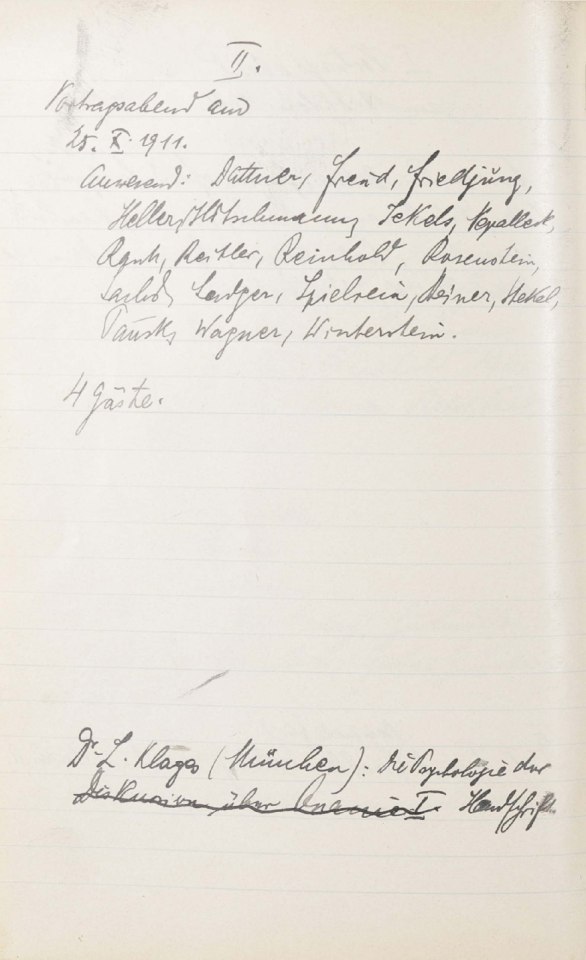 II.
Vortragsabend am
25. X. 1911.
Anwesend: Dattner, Freud, Friedjung,
Heller, Hitschmann, Jekels, Nepalleck,
Rank, Reitler, Reinhold, Rosenstein,
Sachs, Sadger, Spielrein, Steiner, Stekel,
Tausk, Wagner, Winterstein.
4 Gäste.
Dr. L. Klages (München): Die Psychologie der
Diskussion über Onanie I. Handschrift